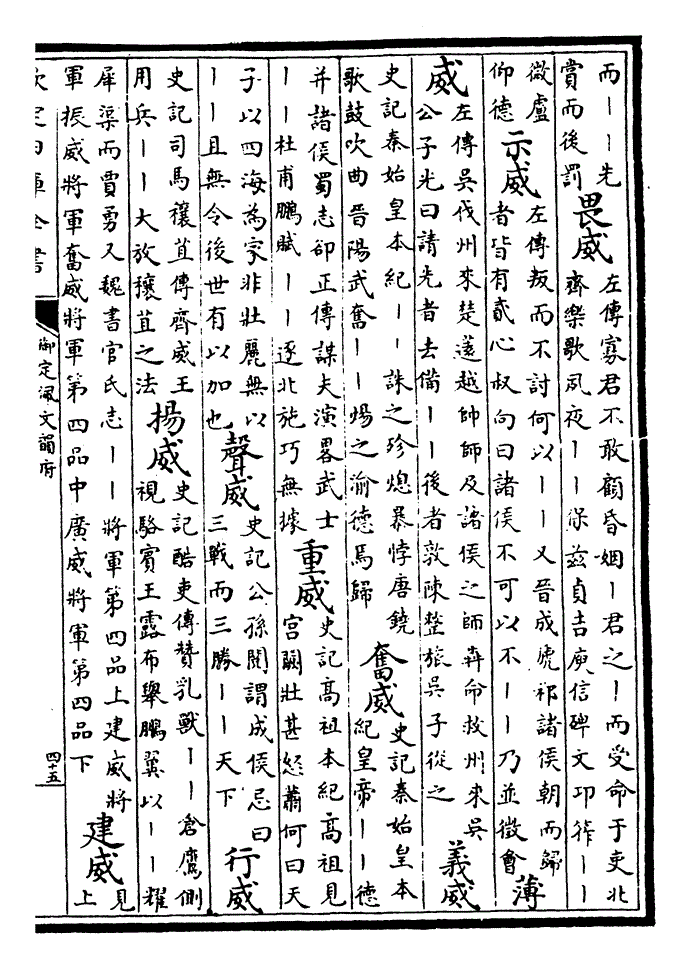 而丨丨先
賞而後罰
畏威
左傳寡君不敢顧昏姻丨君之丨而受命于吏北
齊樂歌夙夜丨丨保兹貞吉庾信碑文功筰丨丨
微盧
仰德
示威
左傳叛而不討何以丨丨又晉成虒祁諸侯朝而歸
者皆有貳心叔向曰諸侯不可以不丨丨乃並徵會
薄
威
左傳吳伐州來楚薳越帥師及諸侯之師奔命救州來吳
公子光曰請先者去備丨丨後者敦陳整旅吳子從之
義威
史記秦始皇本紀丨丨誅之殄熄暴悖唐鐃
歌鼓吹曲晉陽武奮丨丨煬之渝德焉歸
奮威
史記秦始皇本
紀皇帝丨丨德
并諸侯蜀志郤正傳謀夫演畧武士
丨丨杜甫鵬賦丨丨逐北施巧無據
重威
史記高祖本紀高祖見
宮闕壯甚怒蕭何曰天
子以四海為家非壯麗無以
丨丨且無令後世有以加也
聲威
史記公孫閱謂成侯忌曰
三戰而三勝丨丨天下
行威
史記司馬穰苴傳齊威王
用兵丨丨大放穰苴之法
揚威
史記酷吏傳贊乳獸丨丨倉鷹側
視駱賓王露布舉鵬翼以丨丨耀
犀渠而賈勇又魏書官氏志丨丨將軍第四品上建威將
軍振威將軍奮威將軍第四品中廣威將軍第四品下
建威
見
上
欽定四庫全書
御定佩文韻府
四十五